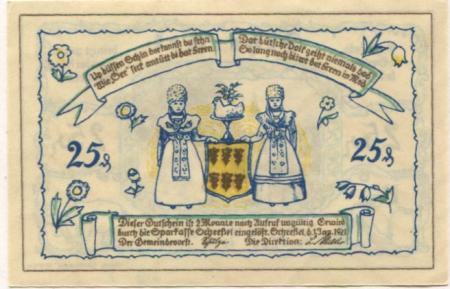 Up düssen Schin dor kannst du sehn
Wie Een sick antütt bi dat Freen.
Dat dütsche Volk geiht niemals dod
So lang noch bliwt dat Freen in Mod.
25 ₰
25 ₰
Dieser Gutschein ist 2 Monate nach Aufruf ungültig. Er wird
durch die Sparkasse Scheeßel eingelöst. Scheeßel, d. 1921
Der Gemeindevorst. Die Direktion: